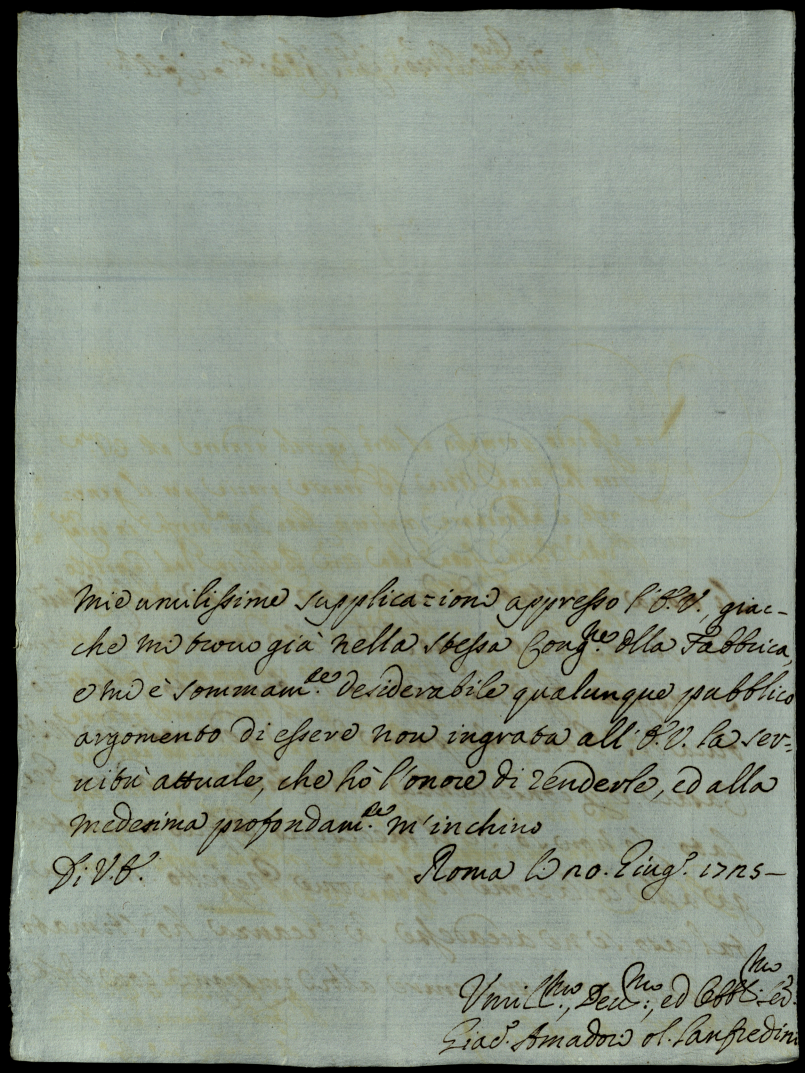 mie umilissime supplicazioni appresso l'E.V., giac-
che mi trovo già nella stessa Cong.ne della Fabbrica,
e mi è sommam.te desiderabile qualunque pubblico
argomento di essere non ingrata all'E.V. la ser-
vitù attuale, che hò l'onore di renderle, ed alla
medesima profondam.te m'inchino
Di V.E. Roma li 20. Giug.o 1725—
Umil.mo, Dev.mo, ed Obbl.mo
Giac.o Amadori de Lanfredini